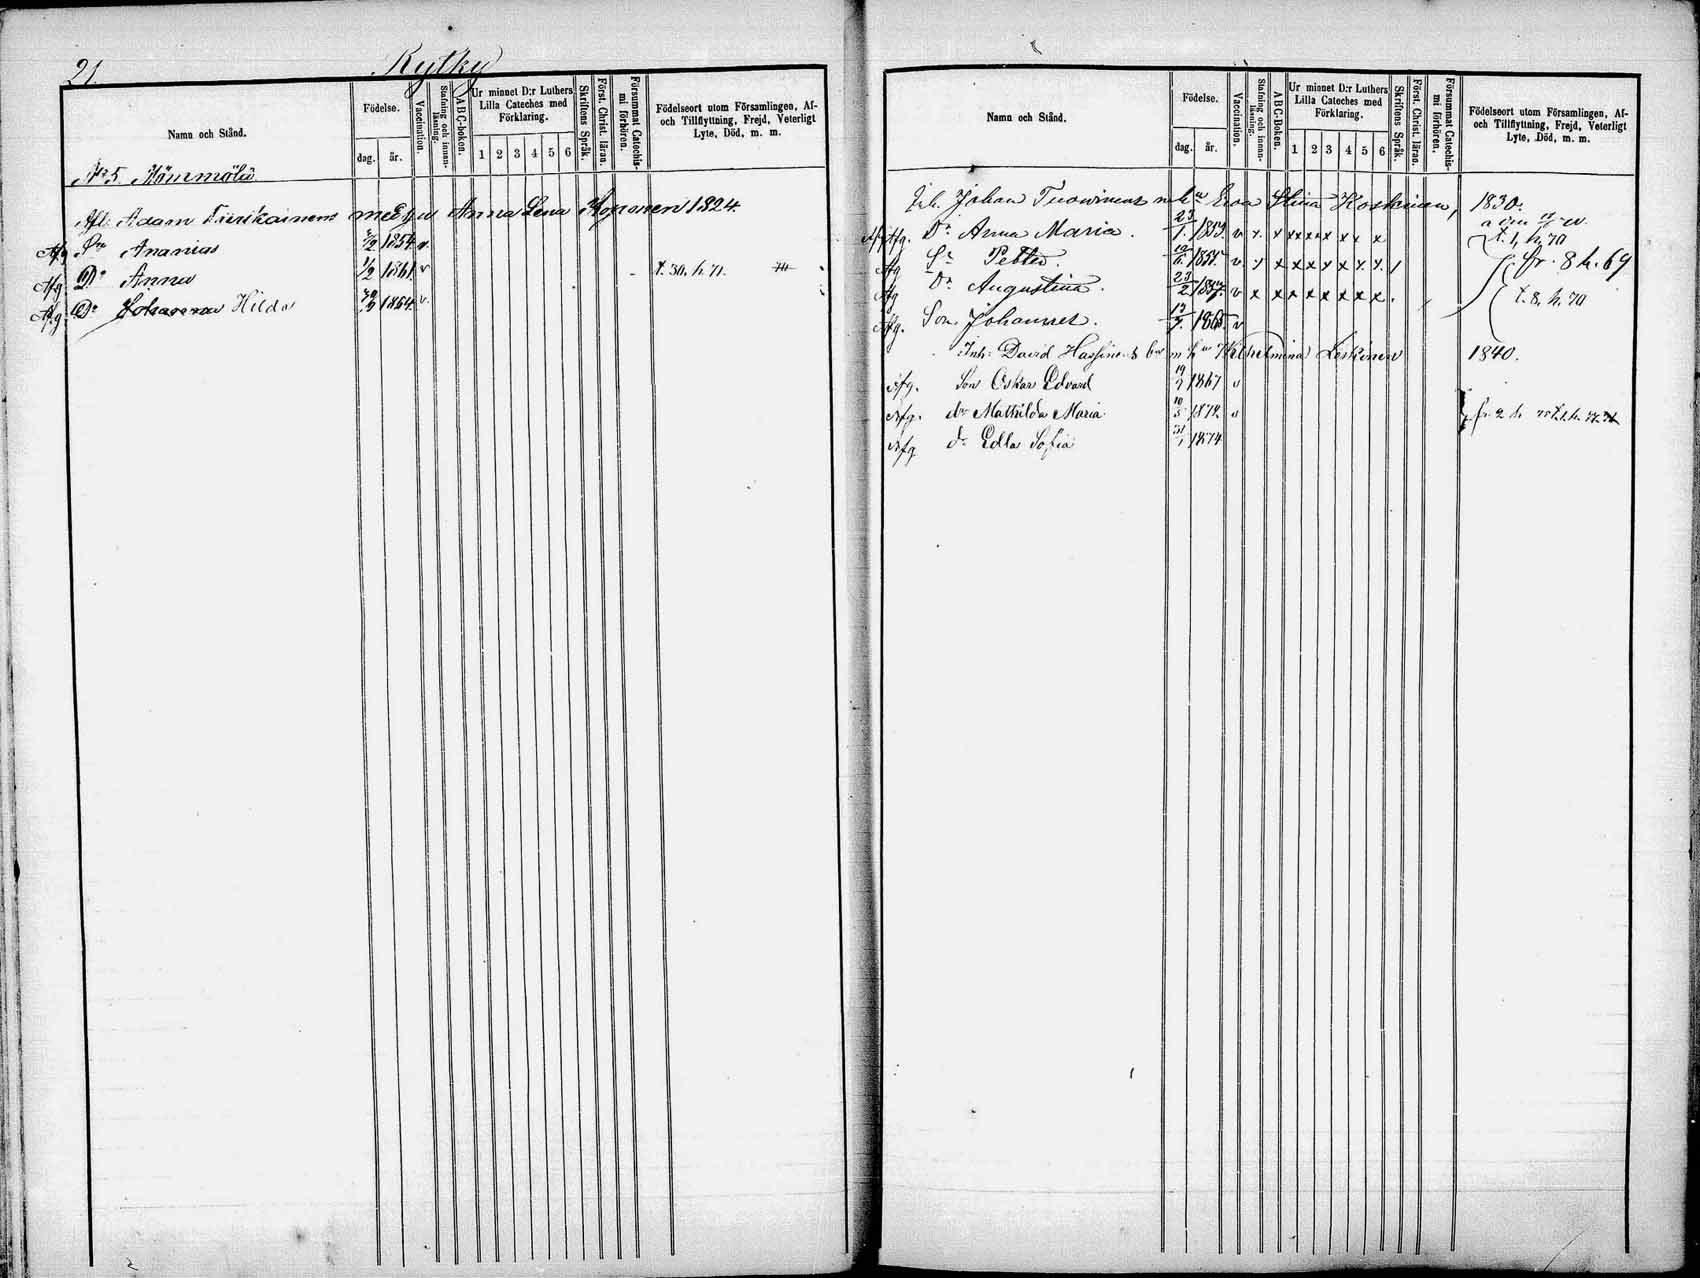 21.
Kytky
Namn och Stånd.
Födelse.
dag. år.
Vaccination.
Stafning och innanläsning.
ABC-boken.
Ur minnet D:r Luthers Lilla Cateches med Förklaring.
1 2 3 4 5 6
Skriftens Språk.
Först. Christ. läran.
Försummat Catechismi förhören.
Födelseort utom Församlingen, Af- och Tillflyttning, Frejd, Veterligt Lyte, Död, m. m.
No 5. Hömmölä
Adam Tiirikainens med hu Anna Lena Koponen 1824.
Afg Sn Ananias 1854. v
Afg Dr Anna 1/2 1861. v t. 30. h. 71.
Afg Dr Johanna Hilda 1864. v.
Namn och Stånd.
Födelse.
dag. år.
Vaccination.
Stafning och innanläsning.
ABC-Boken.
Ur minnet D:r Luthers Lilla Cateches med Förklaring.
1 2 3 4 5 6
Skriftens Språk.
Först. Christ. läran.
Försummat Catechismi förhören.
Födelseort utom Församlingen, Af- och Tillflyttning, Frejd, Veterligt Lyte, Död, m. m.
Inh. Johan Tuowinens Ewa Stina Koskinen, 1830.
Afg. Dr Anna Maria. 23/1. 1853. v x x x x x x x x t. 1, h, 70
Afg Sn Petter. v x x x x x x x fr. 8 h. 69
Afg Dr Augustina. 23/2 1857. v x x x x x x x x t. 8. h. 70
Afg. Son Johannes. 13/7. 1865. v
Inh: David Hassinens m hu Wilhelmina Leskinen 1840.
Afg. Son Oskar Edvard 19/7 1867 v
Afg. dr Mathilda Maria 10/5 1872. v
Afg dr Edla Sofia 31/1 1874